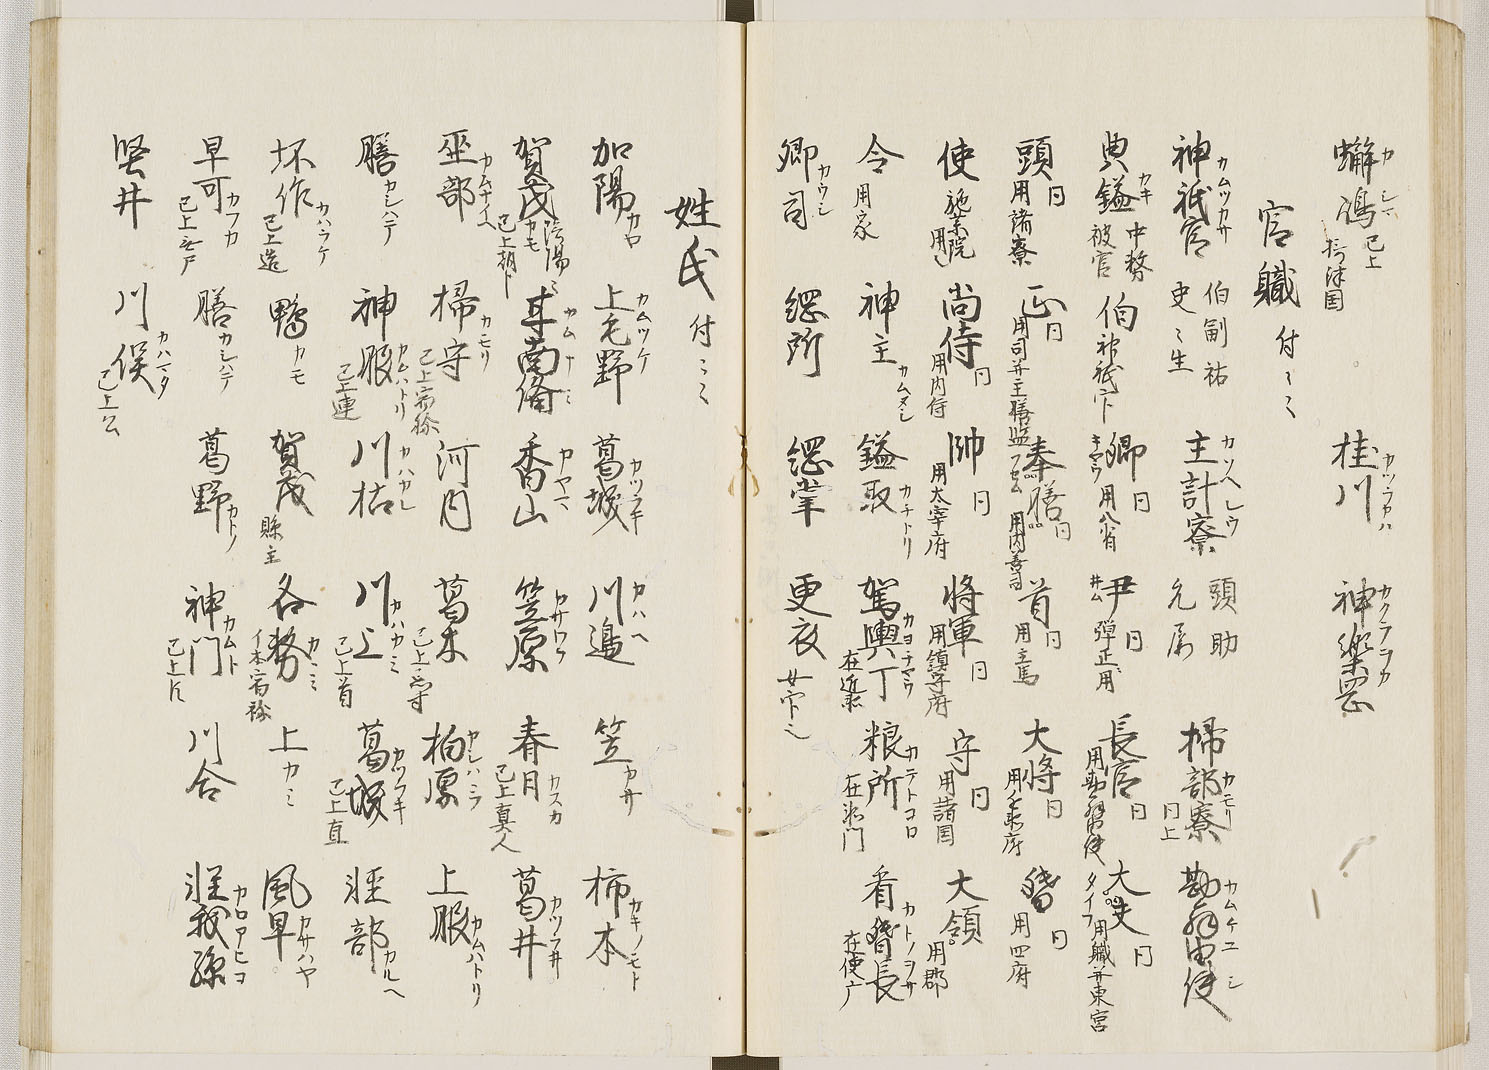 嶋 カシマ 已上 摂津国 桂川 カツラカハ 神樂岡 カクラヲカ
官職 付〻〻
神祇官 カムツカサ 伯副祐史〻生 主計寮 カソヘレウ 頭助允属 掃部寮 カモリ 同上 勘解由使 カムケユシ
典鎰 カキ 中務被官 伯 神祇官 卿 キヤウ 同 用八省 尹 井ム 同 弾正用 長官 同 用勘解由使 大夫 タイフ 同 用職并東宮
頭 同 用諸寮 正 同 用司并主膳監 奉膳 フセム 同 用内善司 首 同 用主馬 大将 同 用近衛府 督 同 用四府
使 施薬院用 尚侍 同 用内侍 帥 同 用太宰府 将軍 同 用鎮守府 守 同 用諸国 大領 用郡
令 用家 神主 カムヌシ 鎰取 カチトリ 駕輿丁 カヨチヤウ 在近衛 粮所 カテトコロ 在衛門 看督長 カトノヲサ 在使庁
卿司 カウシ 綱所 綱掌 更衣 女官〻
姓氏 付〻〻
加陽 カロ 上毛野 カムツケ 葛城 カツラキ 川邉 カハヘ 笠 カサ 柿本 カキノモト
賀茂 カモ 陰陽〻 已上朝臣 甘南備 カムナミ 香山 カヤマ 笠原 カサハラ 春日 カスカ 已上真人 葛井 カツラ井
巫部 カムナイヘ 掃守 カモリ 已上宿祢 河内 葛木 已上忌寸 柏原 カシハラ 上服 カムハトリ
膳 カシハテ 神服 カムハトリ 已上連 川枯 カハカレ 川上 カハカミ 已上首 葛城 カツラキ 已上直 軽部 カルヘ
坏作 カハラケ 已上造 鴨 カモ 賀茂 縣主 各務 カヽミ イ本宿祢 上 カミ 風早 カサハヤ
早可 カフカ 已上無尸 膳 カシハテ 葛野 カトノ 神門 カムト 已上臣 川合 軽我孫 カロアヒコ
竪井 川俣 カハマタ 已上公